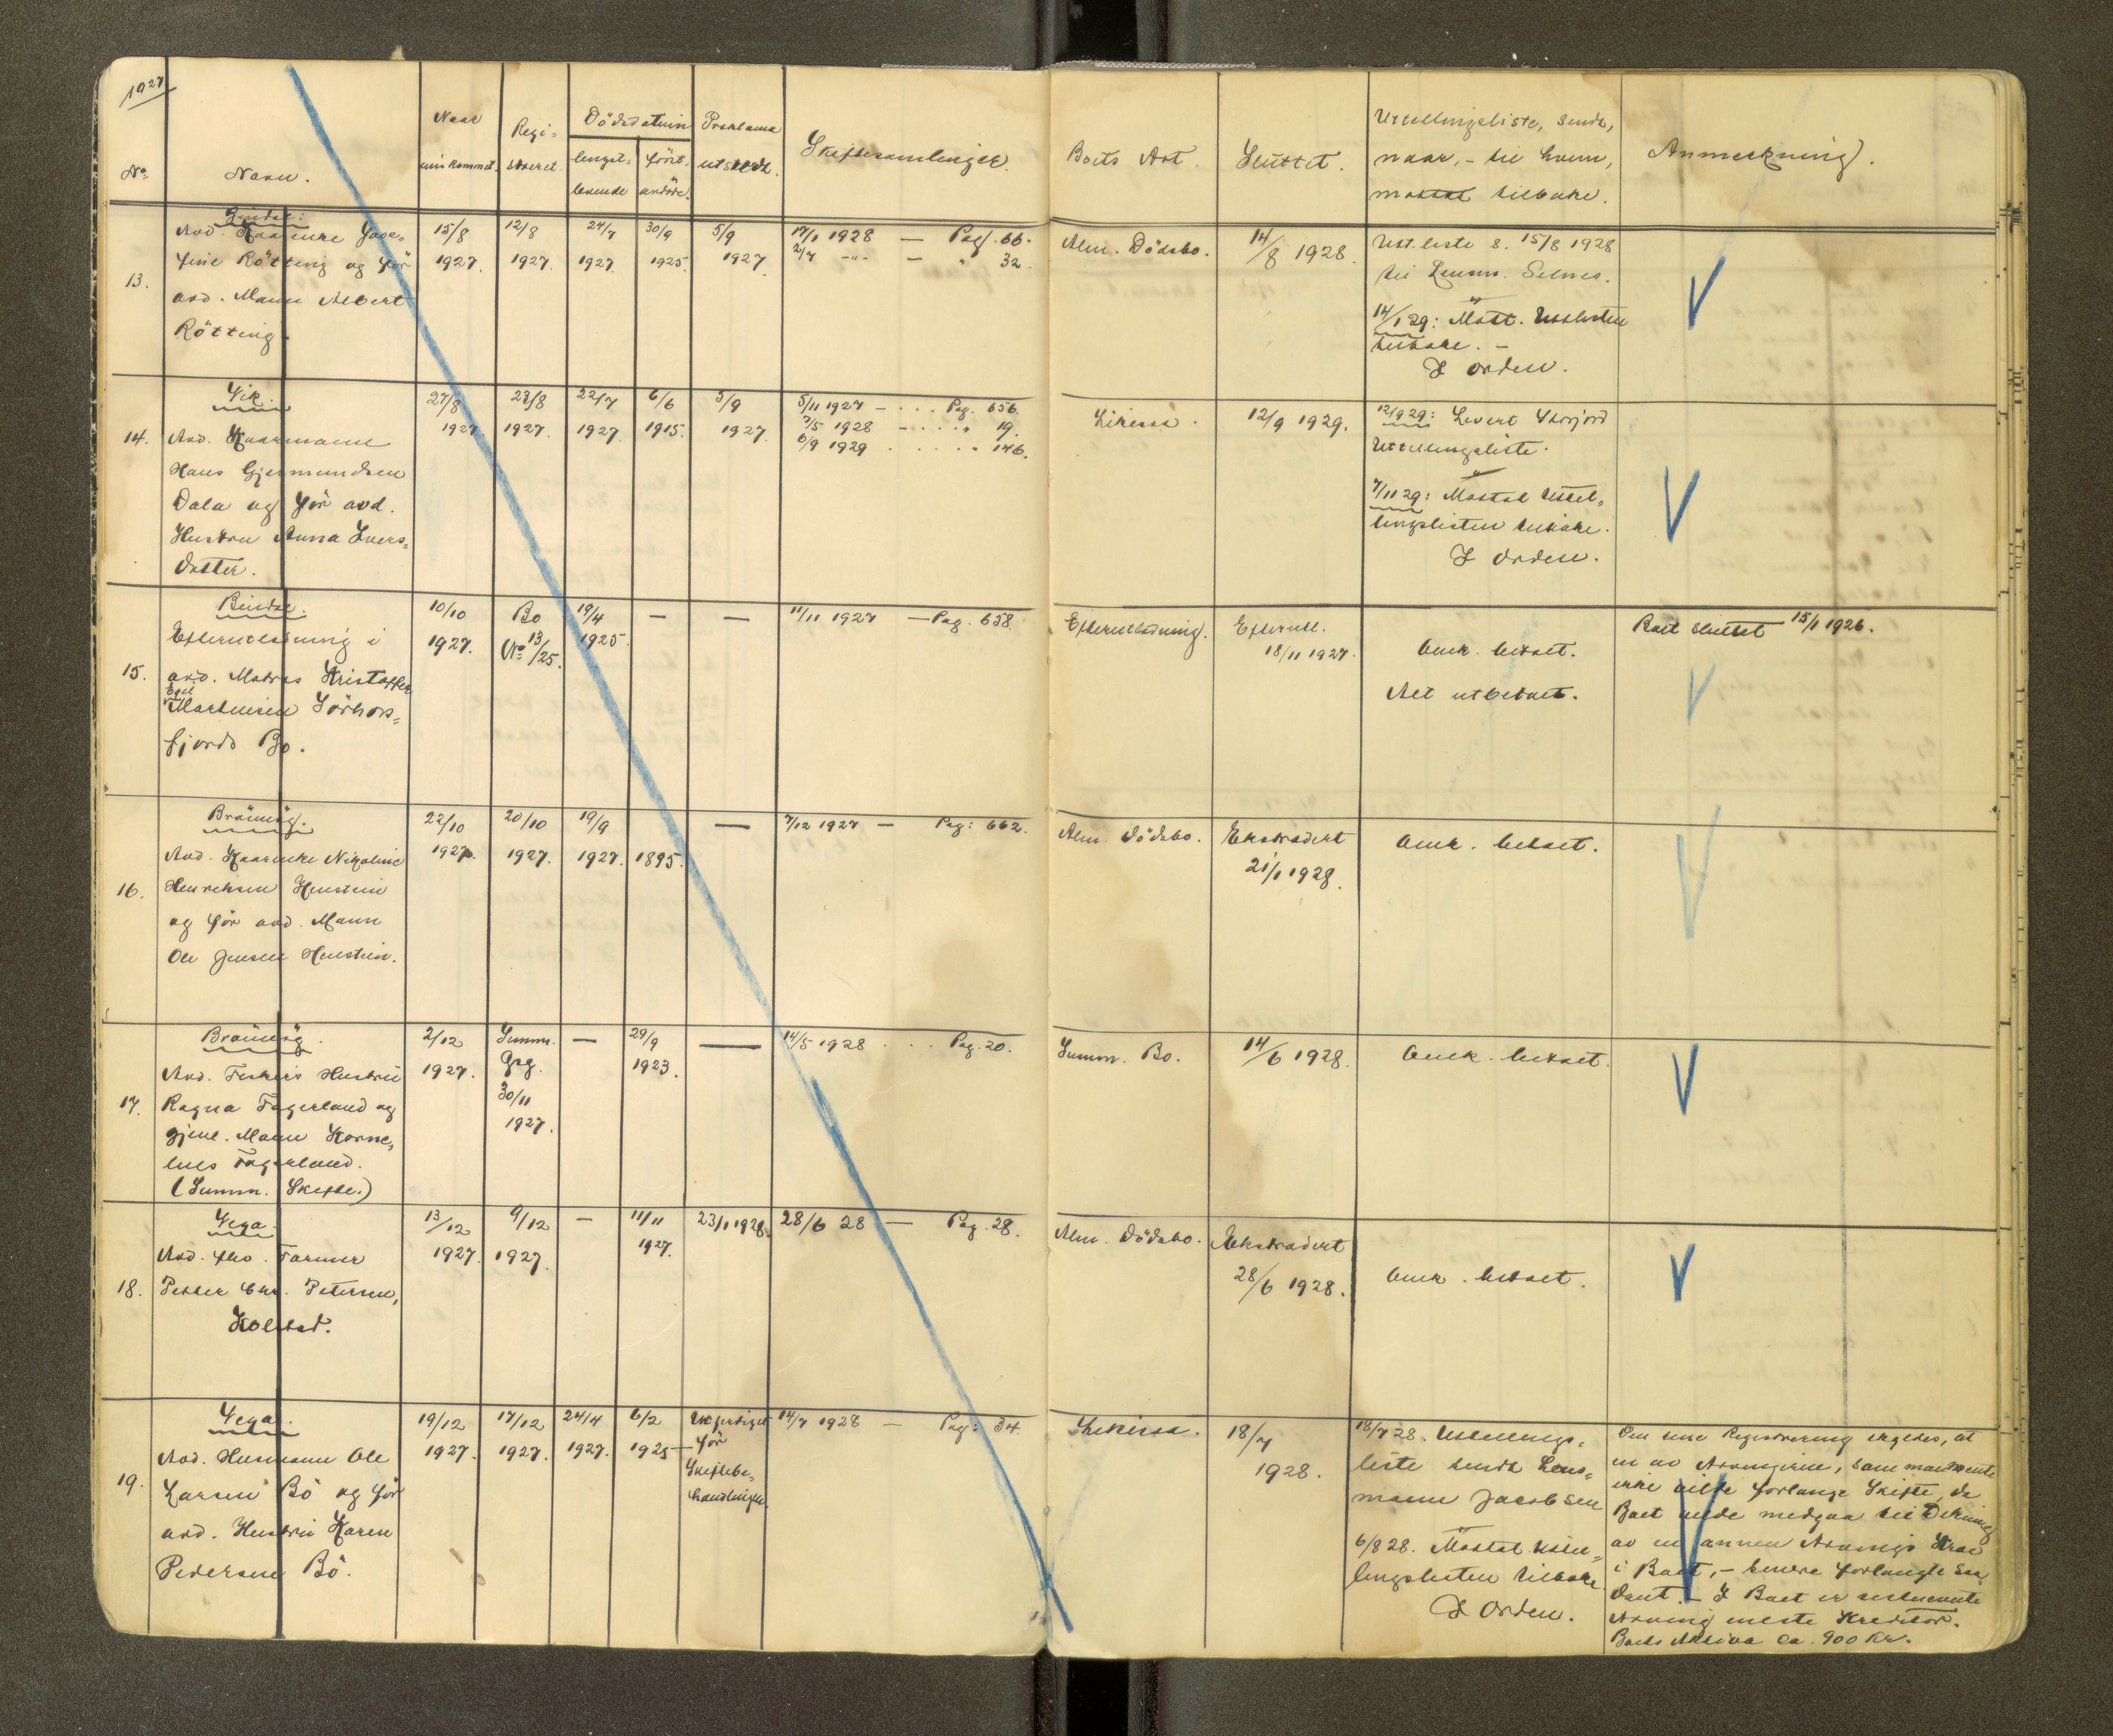 1927
No.
Navn.
Naar
innkommet.
Regi-
streret.
Dödsdatum
lengst-
levende
först.
avdöde.
Proklama
utstedt.
Skiftesamlinger.
Boets Art.
Sluttet.
Utlodningsliste, sendt,
naar, - til hvem,
mottat tilbake.
Anmerkning.
13.
Bindal:
Avd. Kaarenke Jose-
fine Rötting og för
avd. Mann Albert
Rötting.
15/8
1927.
12/8
1927.
24/7
1927.
30/9
1925.
5/9
1927.
17/1 1928 — Pag. 66.
2/7 -"- — " 32.
Alm. Dödsbo.
14/8 1928.
Utl. liste s. 15/8 1928
til Lensm. Selnes.
14/1 29: Mott. Utl.listen
tilbake. —
I orden.
14.
Vik.
Avd. Kaarmann
Hans Gjermundsen
Dala og för avd.
Hustru Anna Ivers-
datter.
27/8
1927.
23/8
1927.
22/7
1927.
6/6
1915.
5/9
1927.
5/11 1927 — . . . Pag. 656.
7/5 1928 — . . . . " 19.
6/9 1929 . . . . . " 146.
12/9 1929.
12/9 29: Levert Storjord
Utlodningsliste.
7/11 29: Mottat Utlod-
ningslisten tilbake.
I orden.
15.
Bindal.
Efterutlodning i
avd. Matros Kristoffer
Egil
Martinsen Sörhors-
fjords Bo.
10/10
1927.
Bo
No 13/25.
19/4
1925.
—
—
11/11 1927 — Pag. 658.
Efterutlodning.
Efterutl.
18/11 1927.
Omk. betalt.
Alt utbetalt.
Boet sluttet 15/1 1926.
16.
Brönnöy.
Avd. Kaarenke Nikoline
Henriksen Henstein
og för avd. Mann
Ole Jensen Henstein.
22/10
1927.
20/10
1927.
19/9
1927.
1895.
—
7/12 1927 — Pag: 662.
Alm. Dödsbo.
Ekstradert
21/1 1928.
Omk. betalt.
17.
Brönnöy.
Avd. Fiskers Hustru
Ragna Fagerland og
gjenl. Mann Korne-
lius Fagerland.
(Summ. Skifte.)
2/12
1927.
Summ.
Reg.
30/11
1927.
—
29/9
1923.
—
14/5 1928 . . . Pag. 20.
Summ. Bo.
14/6 1928.
Omk. betalt.
18.
Vega.
Avd. fho. Farmer
Petter Chr. Petersen,
Kolstad.
13/12
1927.
9/12
1927.
—
11/11
1927.
23/1 1928.
28/6 28 — Pag. 28.
Alm. Dödsbo.
Ekstradert
28/6 1928.
Omk. betalt.
19.
Vega.
Avd. Husmann Ole
Larsen Bö og för
avd. Hustru Karen
Pedersen Bö.
19/12
1927.
17/12
1927.
24/4
1927.
6/2
1925
Utferdiget
för
Skiftebe-
handlingen
14/7 1928 — Pag: 34.
18/7
1928.
18/7 28. Utlodnings-
liste sendt Lens-
mann Jacobsen
6/8 28. Mottat Utlod-
ningslisten tilbake
I Orden.
Den ene Registrering skyldes, at
en av Arvingerne, som man mente
ikke vilde forlange Skifte, da
Boet vilde medgaa til Dekning
av en annen Arvings Krav
i Boet, — senere forlangte saa-
dant. — I Boet er
Arving meste Kreditor.
Boets Aktiva ca. 900 Kr.